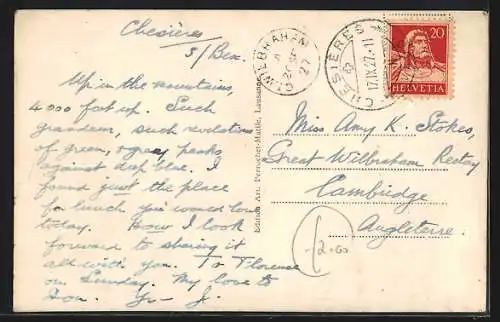 Chesières
s/Bex.
Up in the mountains,
4000 feet up. Such
grandeur, such revelations
of green, & grey peaks
against deep blue. I
found just the place
for lunch you'd love
today. How I look
forward to sharing it
all with you. To Florence
on Sunday. My love to
Don. Yr J.
GT WILBRAHAM
27
CHESIÈRES
17.IX.27.-11
20
HELVETIA
Miss Amy K. Stokes,
Great Wilbraham Rectory
Cambridge
Angleterre.
£2.00
Edition Art. Perrochet-Matile, Lausanne